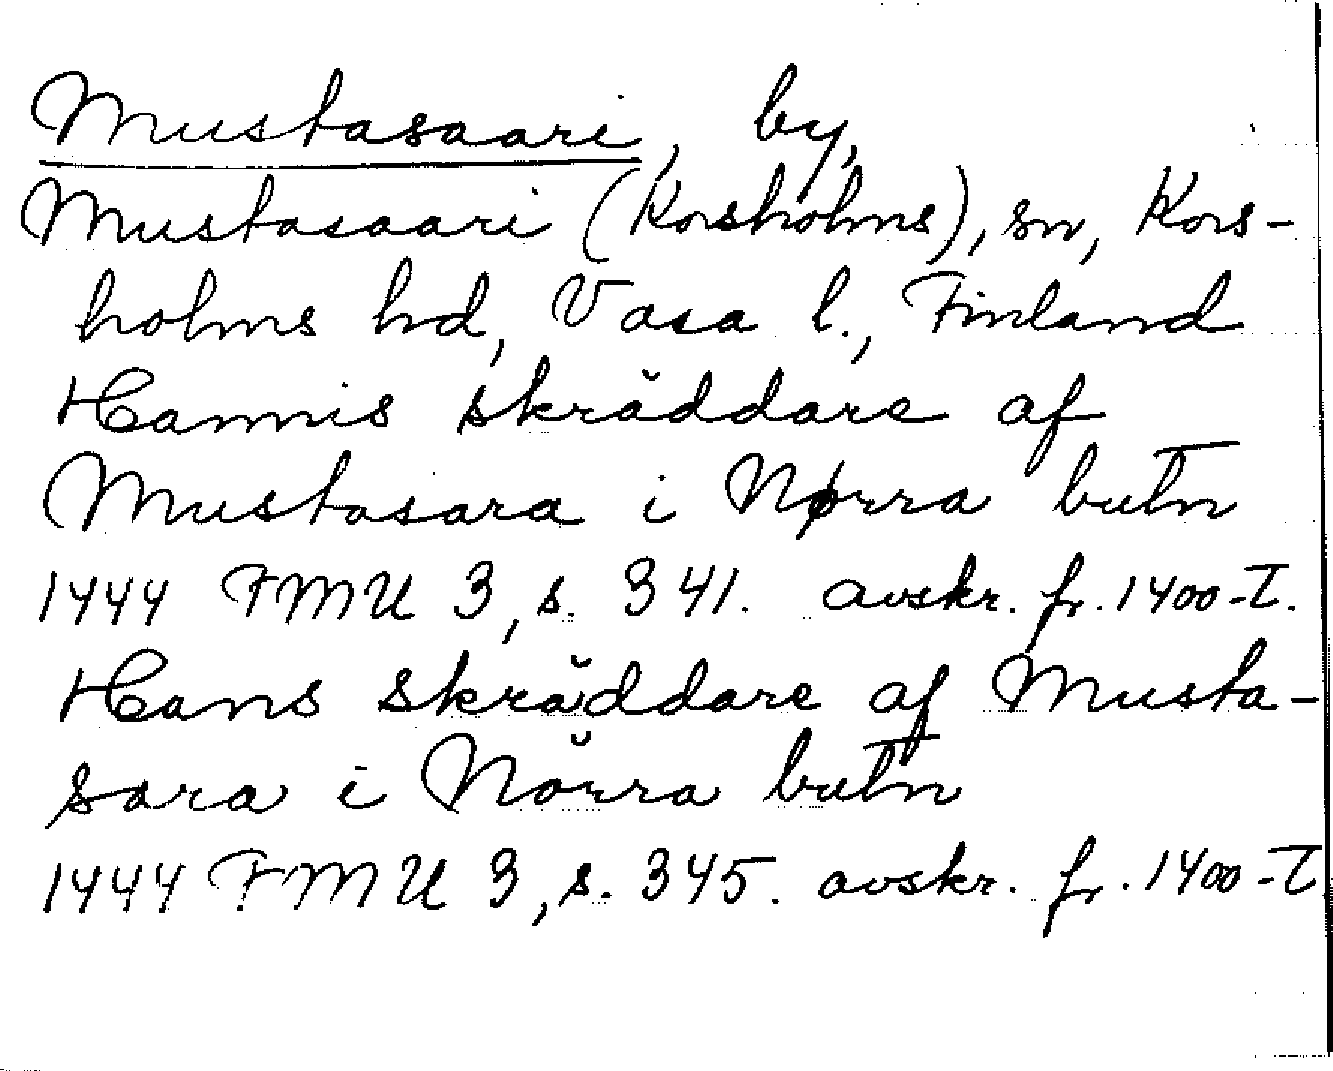 Mustasaari, by,
Mustasaari (Korsholms), sn, Kors-
holms hd, Vasa l., Finland
Hannis skräddare af
Mustasara i Nørra butn̄
1444 FMU 3, s. 341. avskr. fr. 1400-t.
Hans skräddare af Musta-
sara i Nörra butn̄
1444 FMU 3, s. 345. avskr. fr. 1400-t